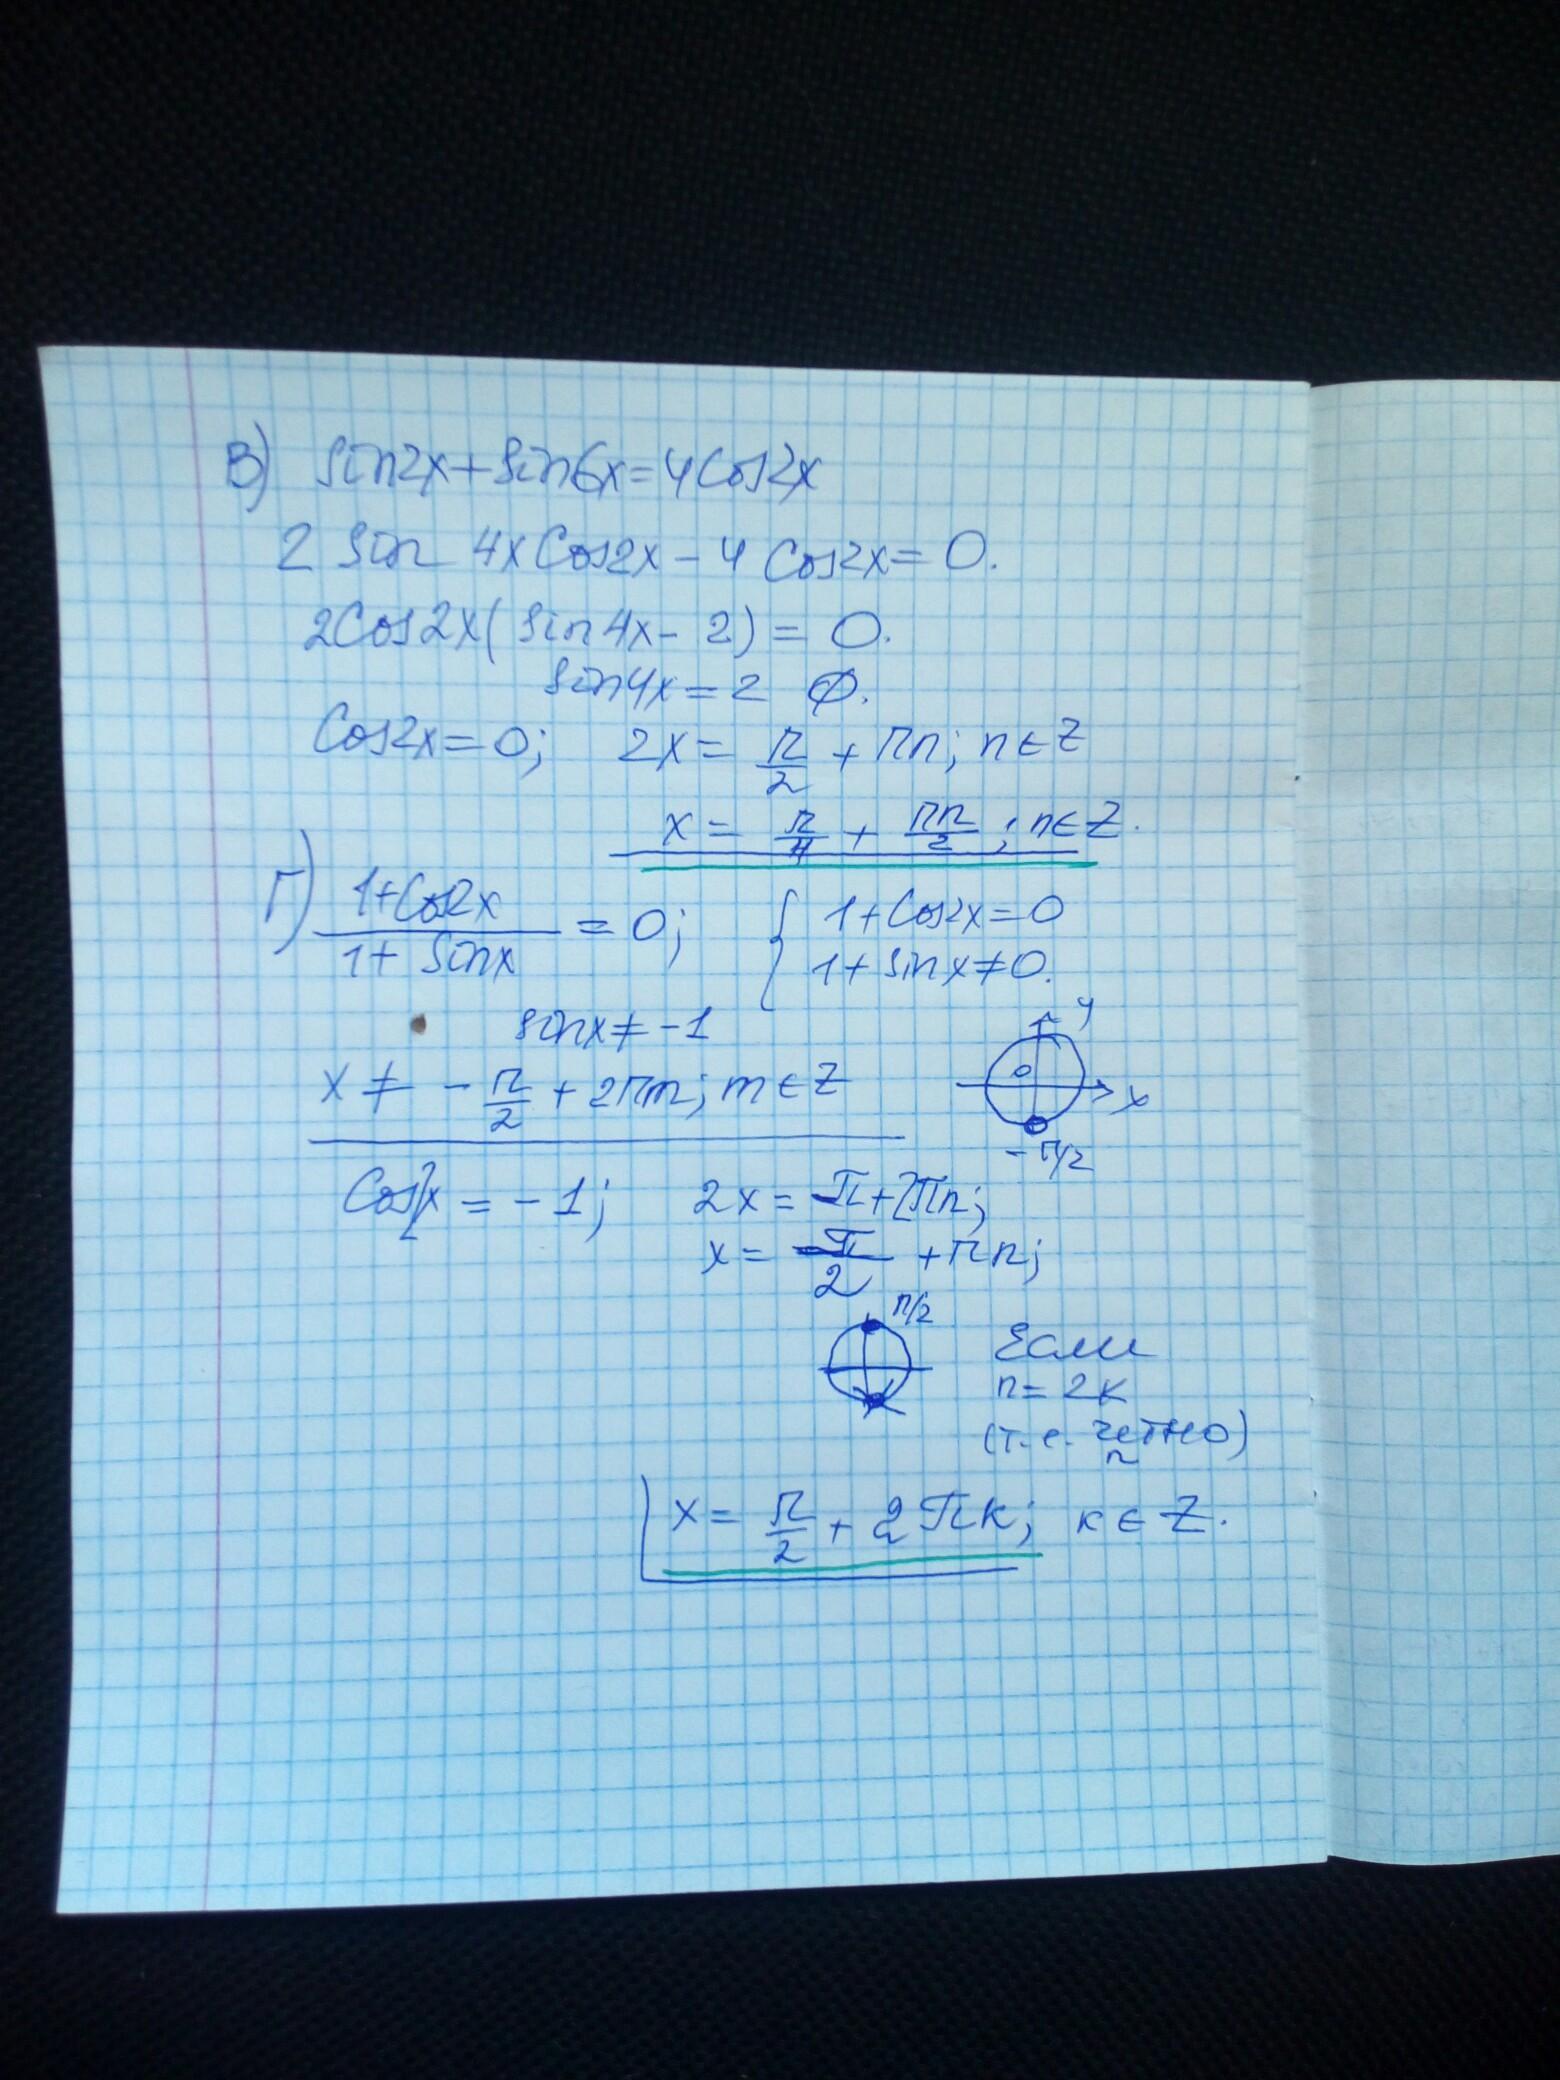 В) sin2x+sin6x=4Cos2x
2 sin 4x Cos2x - 4 Cos2x = 0.
2Cos2x( sin4x - 2) = 0.
sin4x = 2 ∅.
Cos2x = 0; 2x = π/2 + πn; n∈Z
x = π/4 + πn/2 ; n∈Z.
Г) (1+Cos2x)/(1+ sinx) = 0; { 1+Cos2x=0
1+ sinx≠0.
sinx≠ -1
y
x ≠ - π/2 + 2πm; m∈Z
0
x
-π/2
Cos2x = -1; 2x = π+2πn;
x = π/2 + πn;
π/2
Если
n= 2к
(т.е. четно)
n
x = π/2 + 2πк; к∈Z.